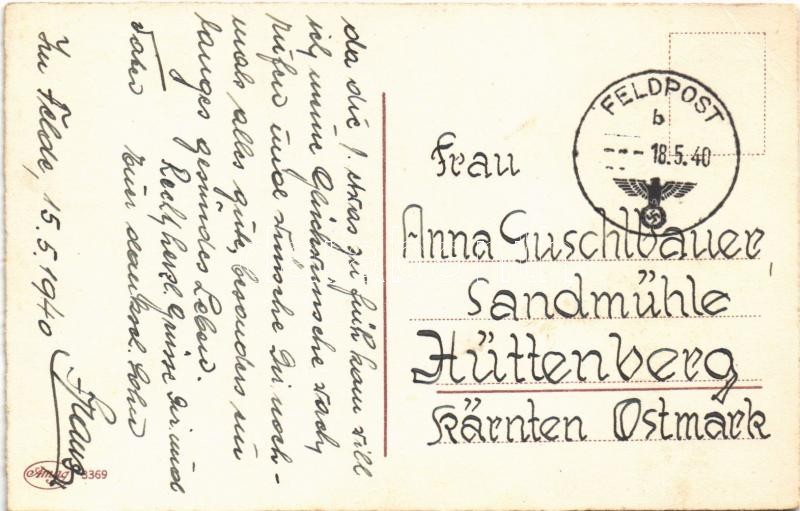 Im Felde, 15.5.1940
da die f. etwas zu früh kam will
ich meine Glückwünsche nach-
rufen und wünsche Dir noch-
mals alles gute, besonders ein
langes gesundes Leben.
Recht herzl. Grüsse Dir und
Vater Euer dankb. Sohn
Amag 3369
FELDPOST
b
--- 18.5.40
Frau
Anna Guschlbauer
Sandmühle
Hüttenberg,
Kärnten Ostmark